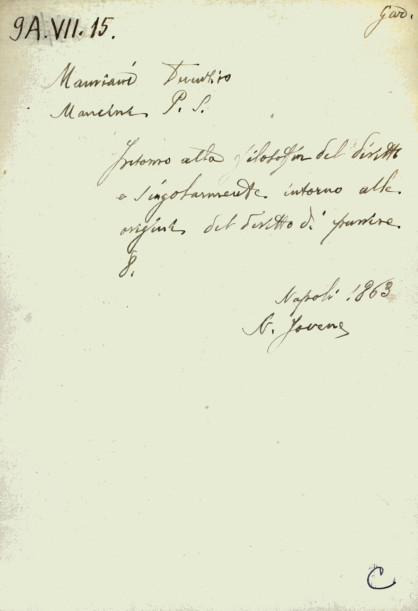 9A.VII.15.
Gar.
Mamiani Terenzio
Mancini P. S.
Intorno alla filosofia del diritto
e singolarmente intorno alle
origini del diritto di punire
8.
Napoli 1863
N. Jovene
C